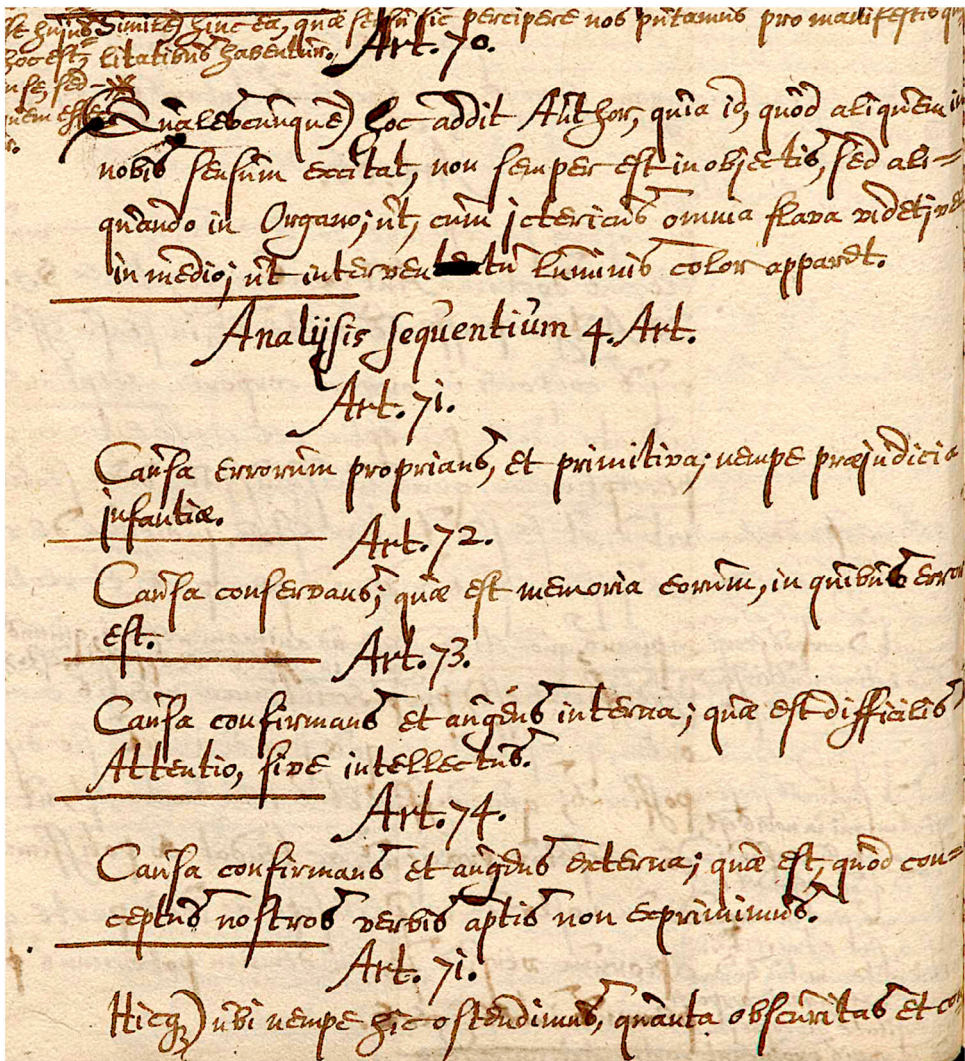 hinc ea, quæ sensu sic percipere nos putamus pro manifestis
hoc est, litatibus habentur. Art. 70.
Qualescunque) hoc addit Author, quia id, quod aliquem in
nobis sensum excitat, non semper est in objectis, sed ali=
quando in Organo; ut, cum ictericus omnia flava videt; vel
in medio; ut interventu luminis color apparet.
Analijsis sequentium 4. Art.
Art. 71.
Causa errorum proprians, et primitiva; nempe præjudicia
infantiæ.
Art. 72.
Causa conservans; quæ est memoria eorum, in quibus error
est.
Art. 73.
Causa confirmans et augens interna; quæ est difficilis
Attentio, sive intellectus.
Art. 74.
Causa confirmans et augens externa; quæ est, quod con=
ceptus nostros verbis aptis non exprimimus.
Art. 71.
Hicq3) ubi nempe hic ostendimus, quanta obscuritas et